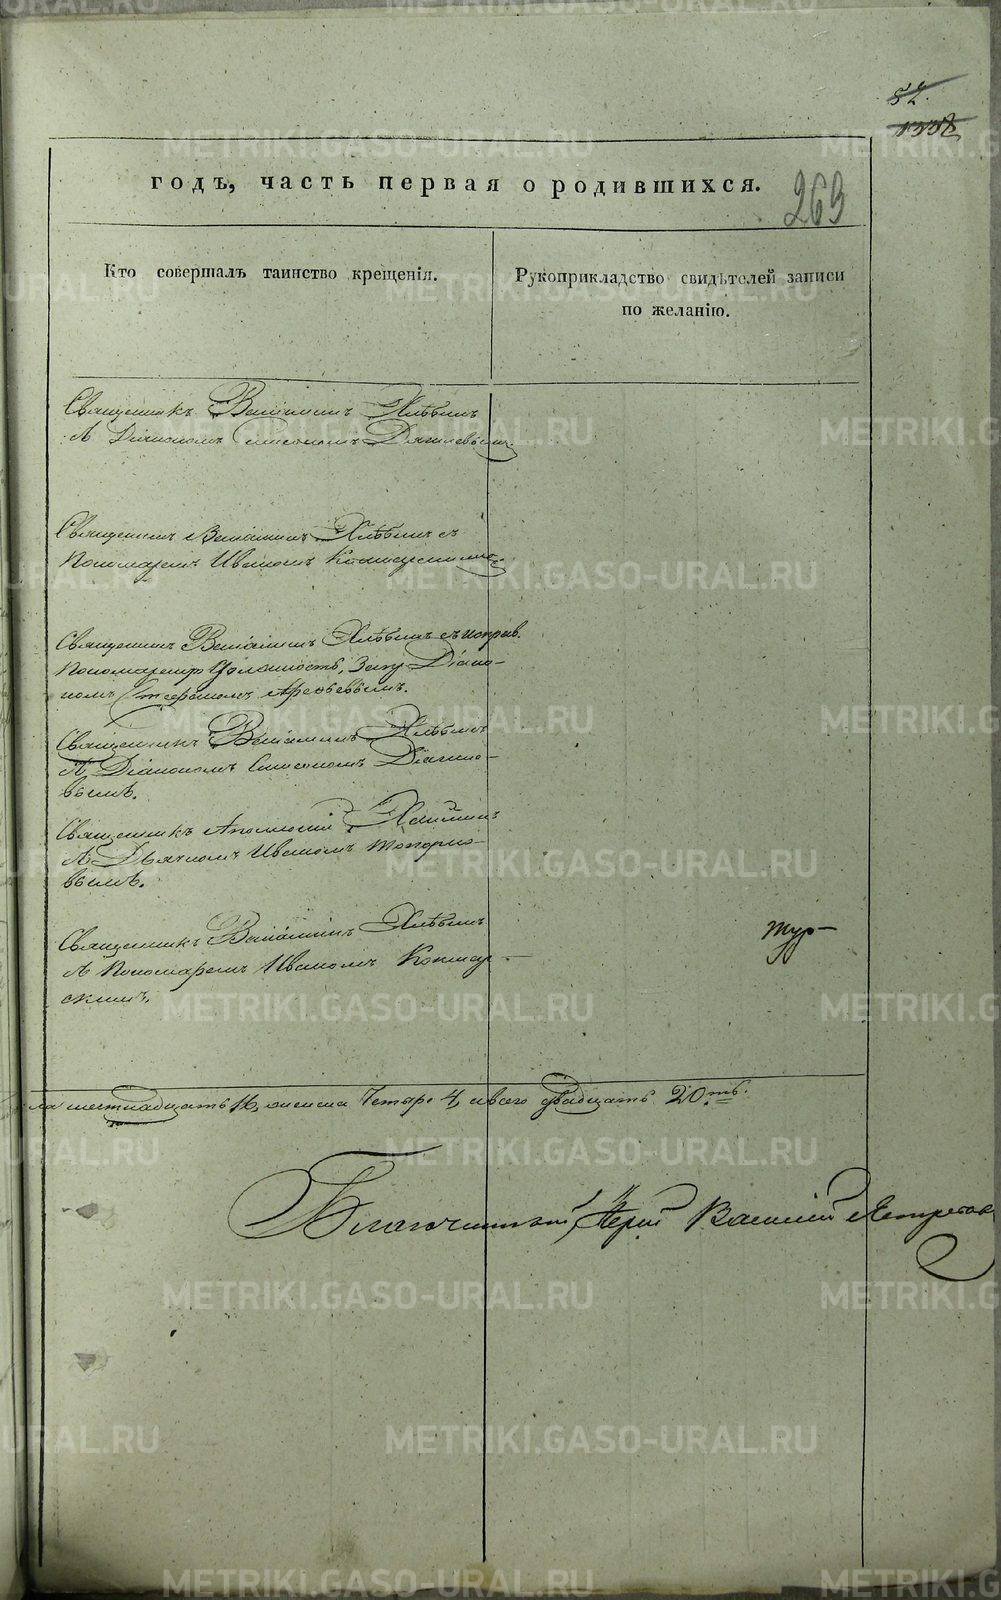 52.
1338
годъ, часть первая о родившихся.
269
Кто совершалъ таинство крещенія.
Рукоприкладство свидѣтелей записи
по желанію.
Священникъ Веніаминъ Хлѣбинъ
Діакономъ
Священникъ Веніаминъ Хлѣбинъ съ
Пономаремъ Иваномъ
Священникъ Веніаминъ Хлѣбинъ съ исправ.
Пономарскую должность, Заш. Діако-
номъ Стефаномъ Арефьевымъ.
Священникъ Веніаминъ Хлѣбинъ
Діакономъ Симеономъ Дягиле-
вымъ.
Священникъ Аполлосій
Дьячкомъ Иваномъ Топорко-
вымъ.
Священникъ Веніаминъ Хлѣбинъ
Пономаремъ Иваномъ Кокшар-
скимъ.
Тур-
ла шестнадцать 16, женска Четыре 4, и всего двадцать 20ть.
Благочинный Іерей Василій
METRIKI.GASO-URAL.RU